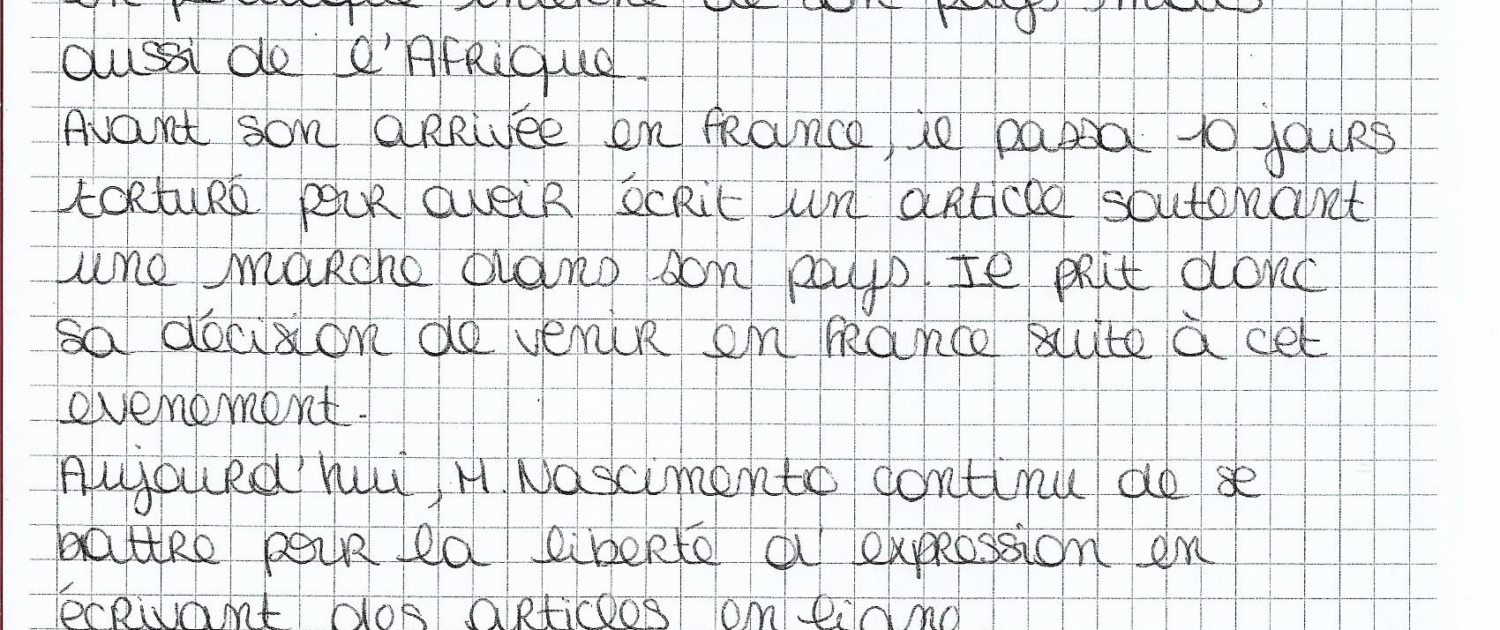 en politique interne de son pays mais
aussi de l'Afrique.
Avant son arrivée en France, il passa 10 jours
torturé pour avoir écrit un article soutenant
une marche dans son pays. Il prit donc
sa décision de venir en France suite à cet
evenement.
Aujourd'hui, M. Nascimento continu de se
battre pour la liberté d'expression en
écrivant des articles en ligne